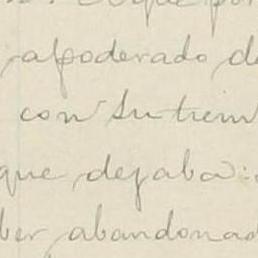 apoderado de
con su trein
que dejaba:
ber abandonad